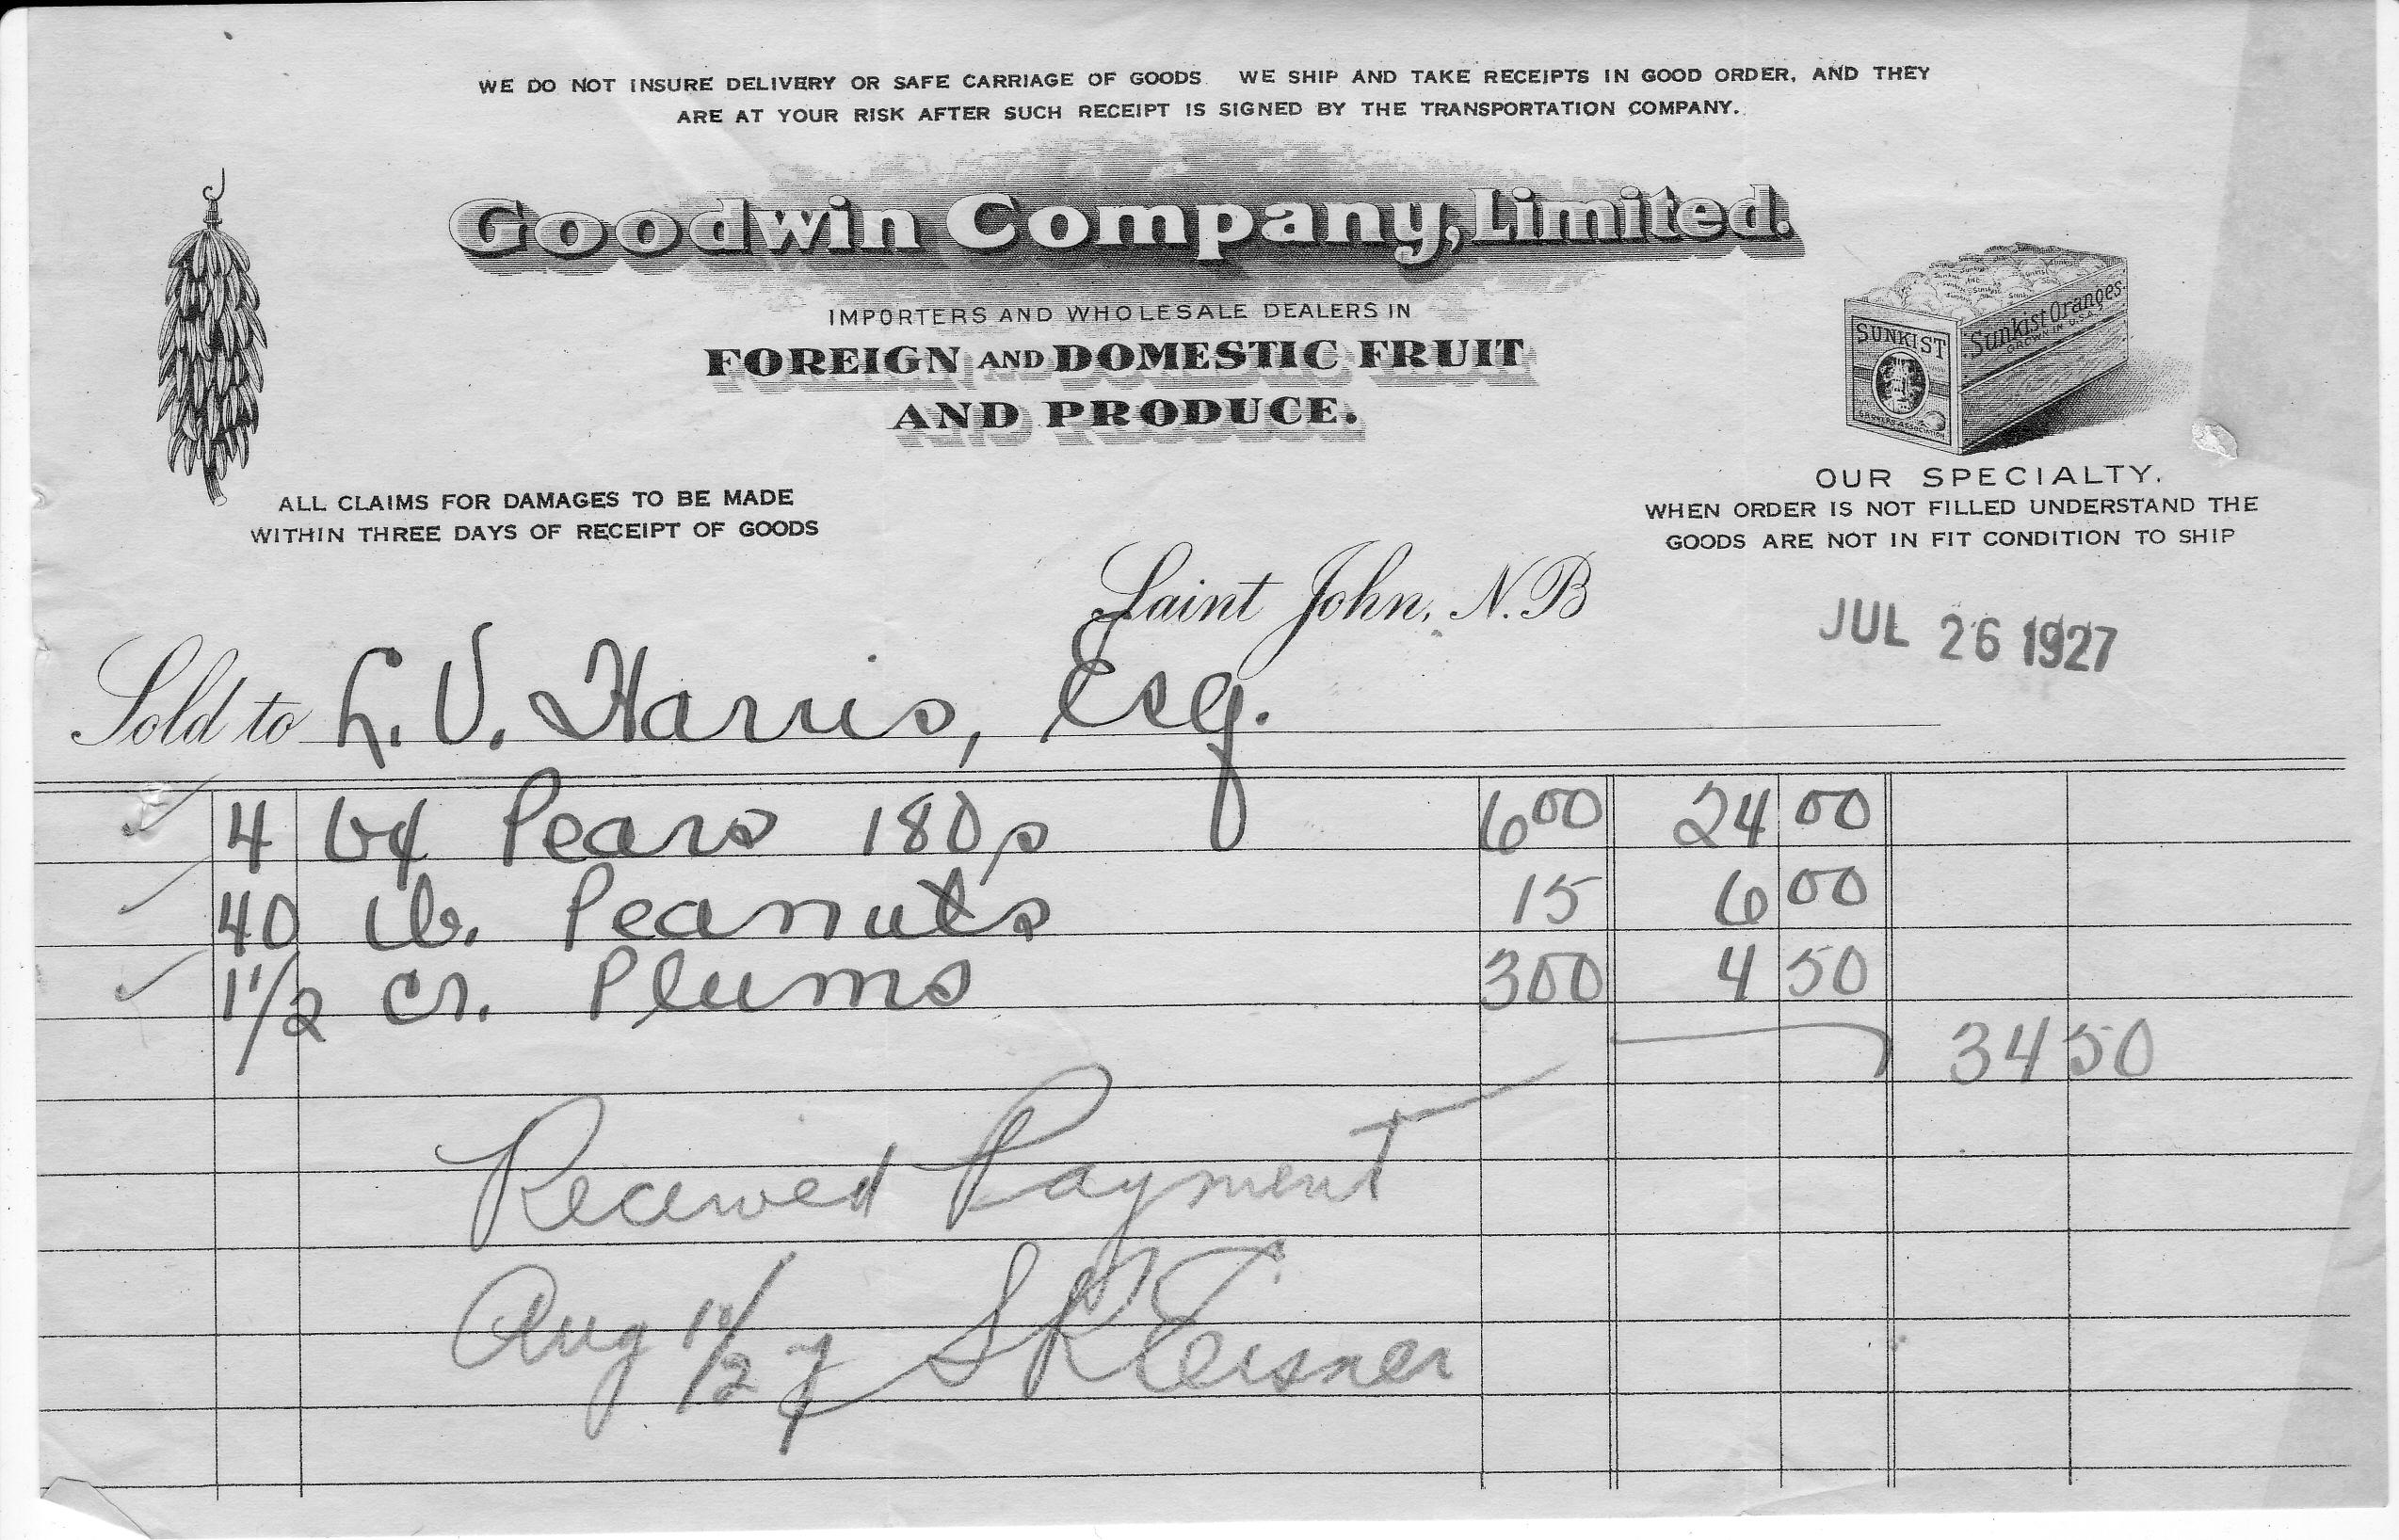 WE DO NOT INSURE DELIVERY OR SAFE CARRIAGE OF GOODS WE SHIP AND TAKE RECEIPTS IN GOOD ORDER, AND THEY
ARE AT YOUR RISK AFTER SUCH RECEIPT IS SIGNED BY THE TRANSPORTATION COMPANY.
Goodwin Company, Limited.
IMPORTERS AND WHOLESALE DEALERS IN
FOREIGN AND DOMESTIC FRUIT
AND PRODUCE.
SUNKIST
Sunkist Oranges
GROWN IN U.S.A.
ALL CLAIMS FOR DAMAGES TO BE MADE
WITHIN THREE DAYS OF RECEIPT OF GOODS
OUR SPECIALTY.
WHEN ORDER IS NOT FILLED UNDERSTAND THE
GOODS ARE NOT IN FIT CONDITION TO SHIP
Saint John, N.B
JUL 26 1927
Sold to L. V. Harris, Esq.
4 bx Pears 180s 6 00 24 00
40 lb. Peanuts 15 6 00
1 1/2 cr. Plums 300 4 50
34 50
Received Payment
Aug /27 S K